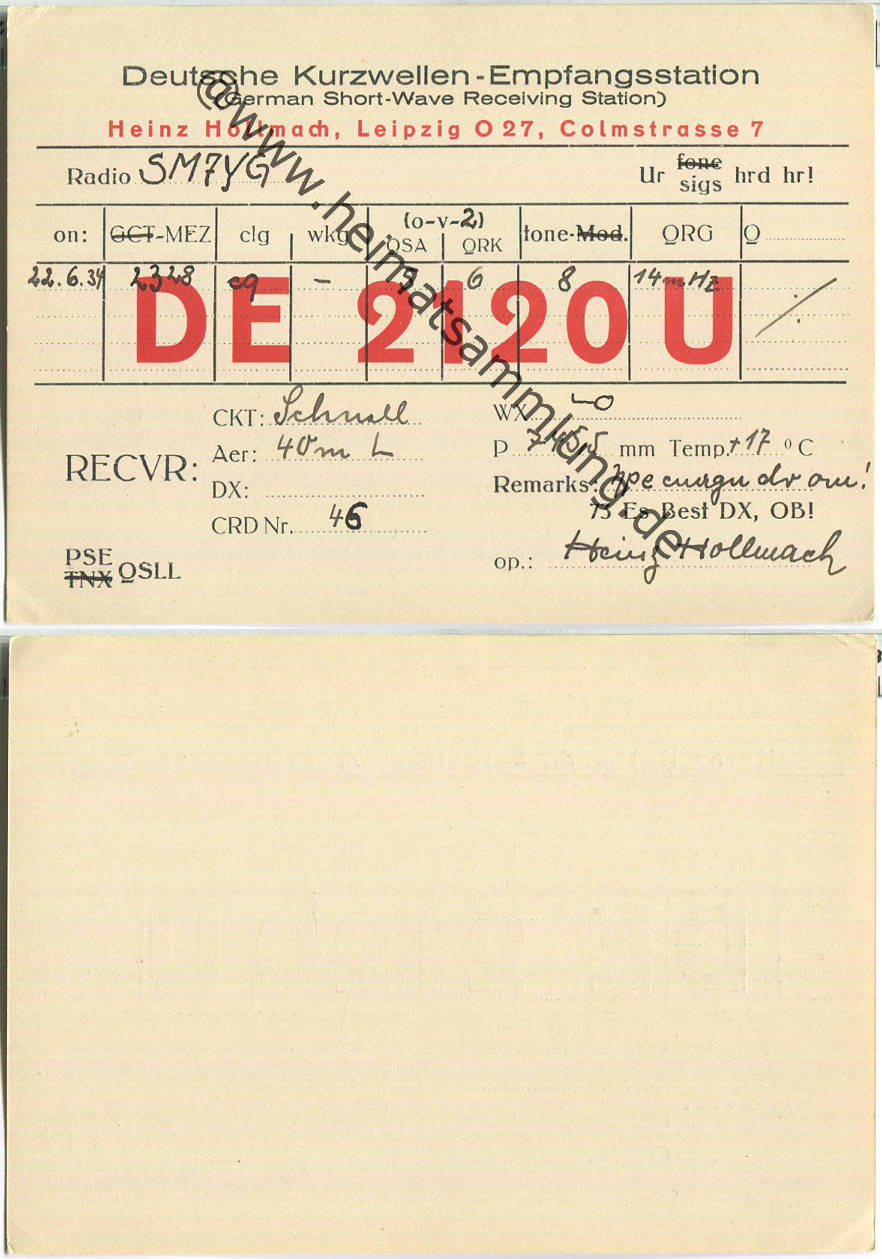 Deutsche Kurzwellen-Empfangsstation
(German Short-Wave Receiving Station)
Heinz Hollmach, Leipzig O 27, Colmstrasse 7
Radio SM7YG Ur fone sigs hrd hr!
on: GCT-MEZ clg wkg (o-v-2) QSA QRK tone-Mod. QRG Q
22.6.34 2328 cq - 5 6 8 14mHz
DE 2120 U
CKT: Schnell
Aer: 40m L
RECVR:
DX:
CRD Nr. 46
PSE
TNX QSLL
WX
P 745,5 mm Temp. +17 °C
Remarks: hpe cuagn dr om!
73 Es Best DX, OB!
op.: Heinz Hollmach
@www.heimatsammlung.de